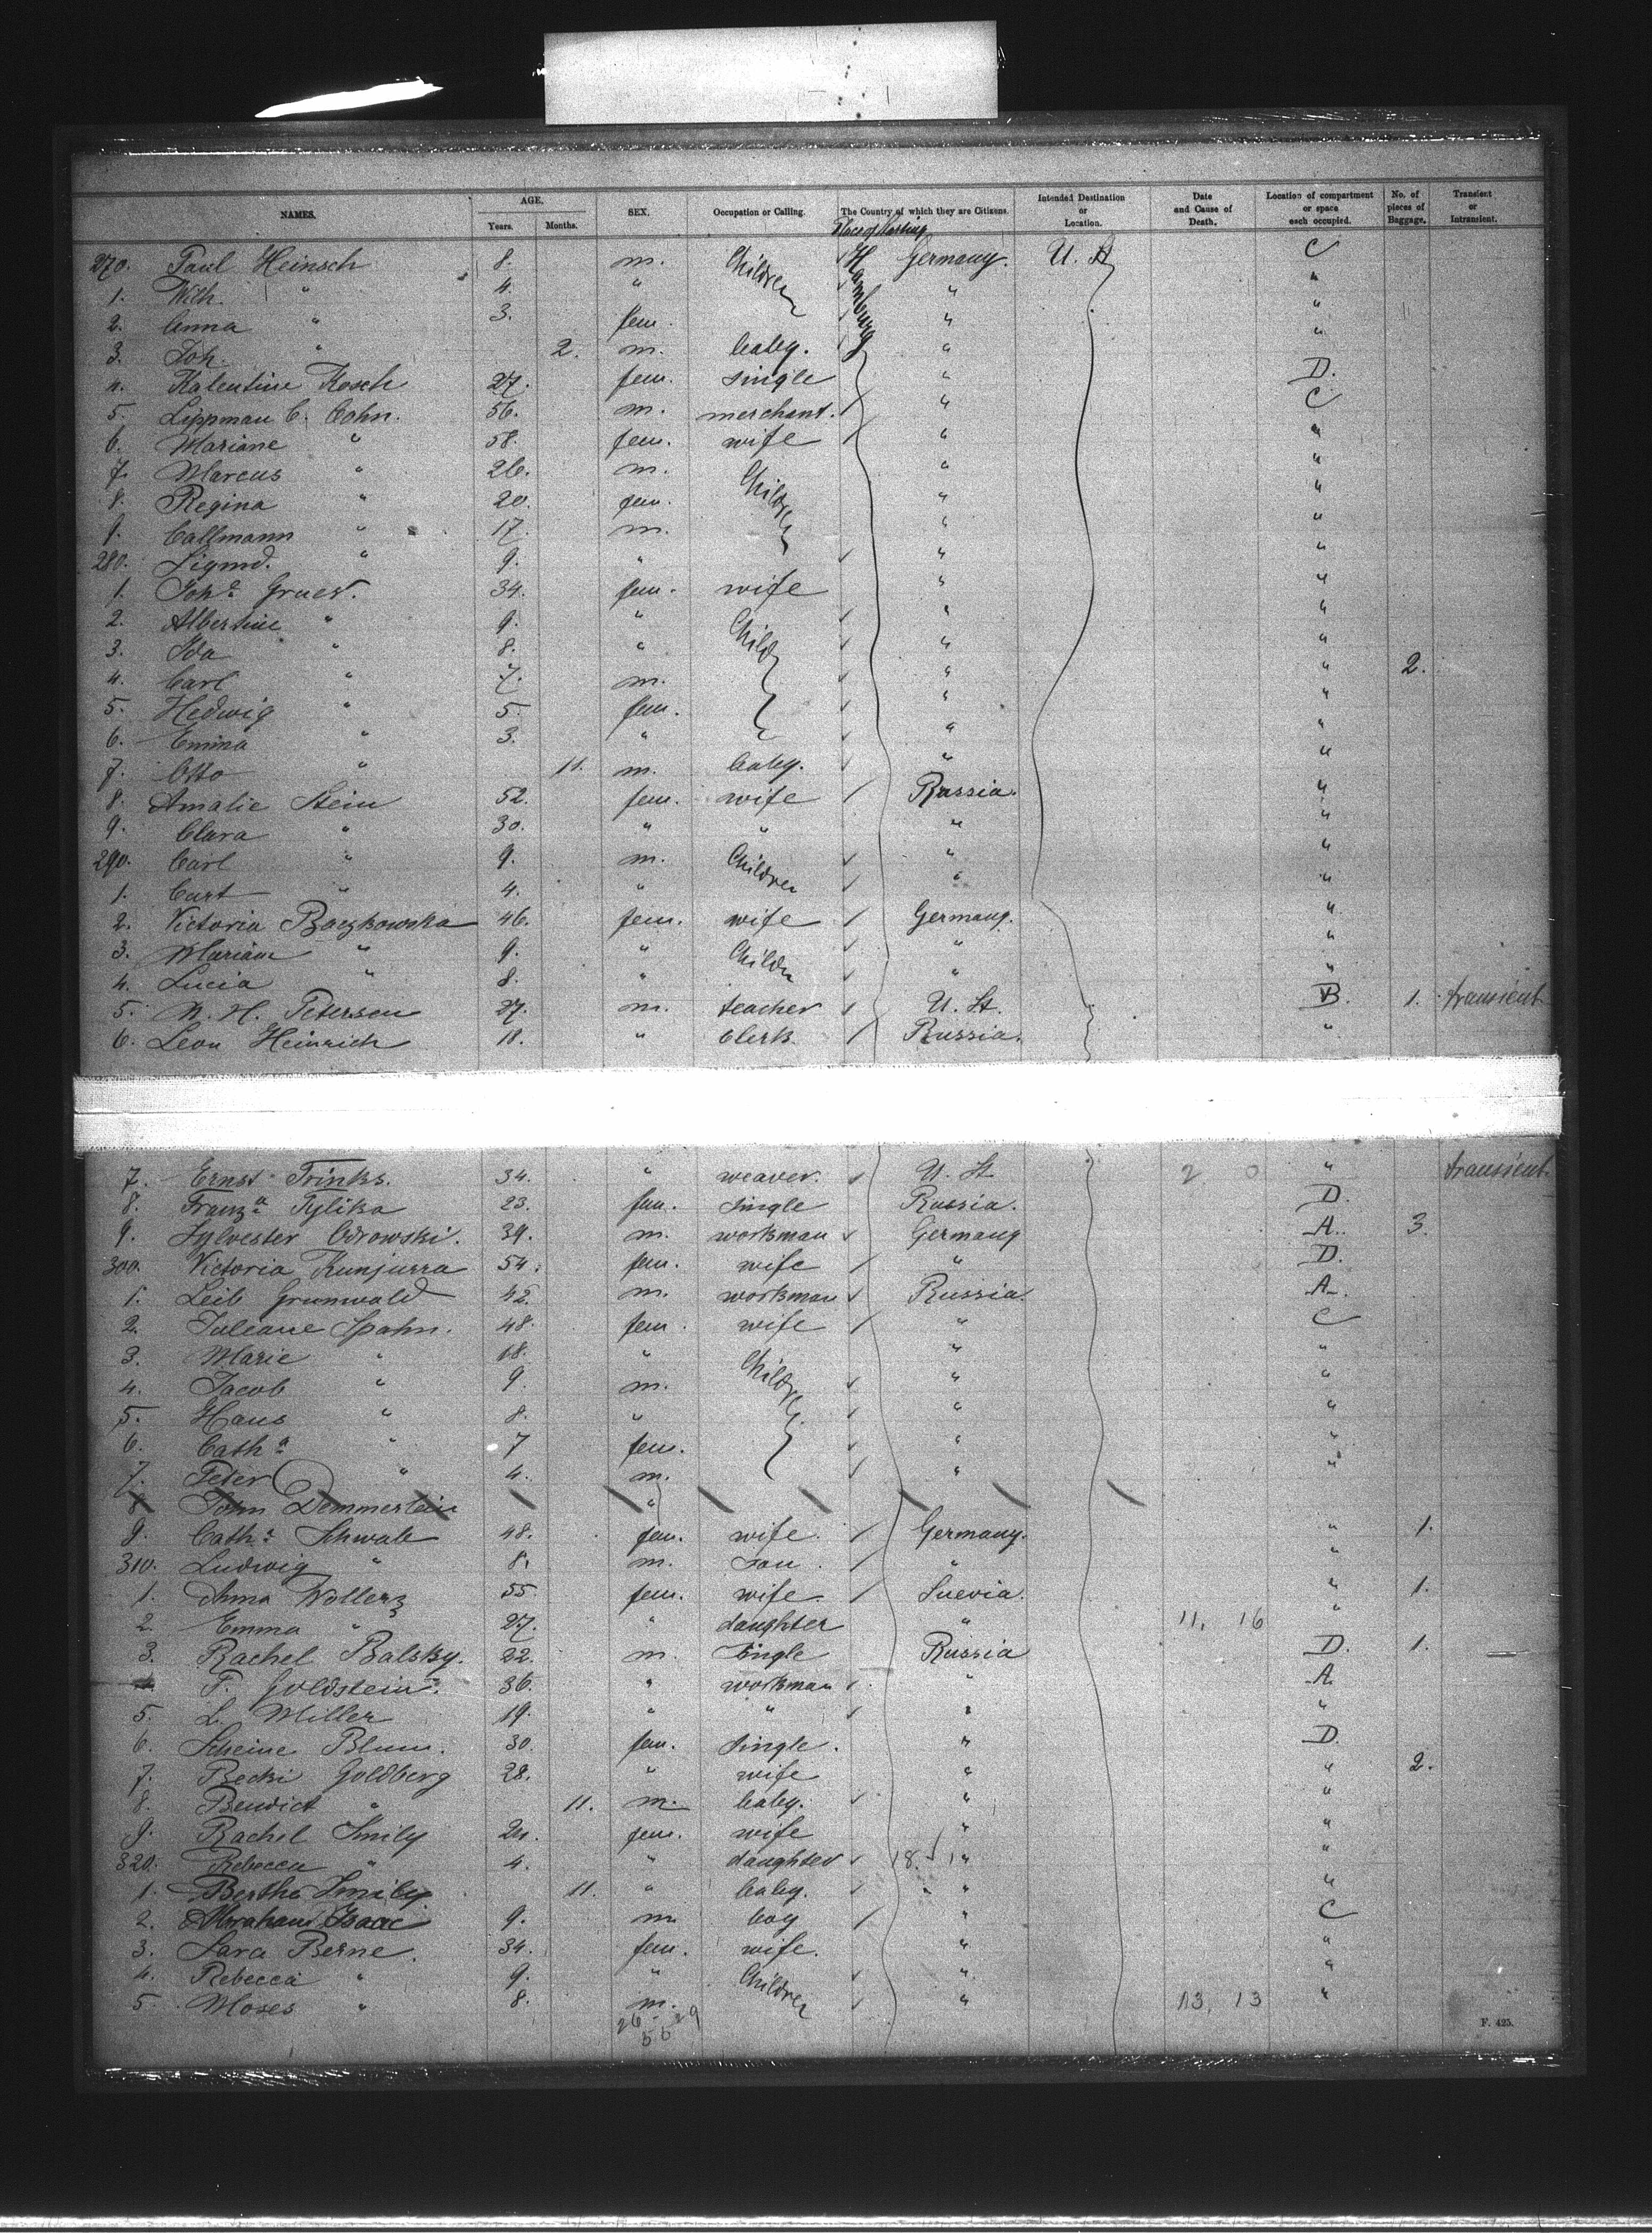 NAMES. AGE. Years. Months. SEX. Occupation or Calling. The Country of which they are Citizens. Intended Destination or Location. Date and Cause of Death. Location of compartment or space each occupied. No. of pieces of Baggage. Transient or Intransient.
Place of Starting
270. Paul Heinsch 8. m. Children Hamburg Germany. U. St C
1. Wilh. " 4. " " "
2. Anna " 3. fem. " "
3. Joh. " 2. m. baby. " "
4. Kalentine Kosch 27. fem. single " D.
5. Lippman C. Cohn. 56. m. merchant. " C
6. Mariane " 58. fem. wife " "
7. Marcus " 26. m. Children " "
8. Regina " 20. fem. " "
9. Callmann " 17. m. " "
280. Sigmd. " 9. " " "
1. Joha Gruer. 34. fem. wife " "
2. Albertine " 9. " Child " "
3. Ida " 8. " " "
4. Carl " 7. m. " " 2.
5. Hedwig " 5. fem. " "
6. Emma " 3. " " "
7. Otto " 11. m. baby. " "
8. Amalie Stein 52. fem. wife Russia. "
9. Clara " 30. " " " "
290. Carl " 9. m. Children " "
1. Curt " 4. " " "
2. Victoria Baczkowska 46. fem. wife Germany. "
3. Mariam " 9. " Childn " "
4. Lucia " 8. " " "
5. N. H. Petersen 27. m. teacher U. St. B. 1. transient
6. Leon Heinrich 18. " Clerk Russia. "
7. Ernst Trinks. 34. " weaver. U. St 2 0 " transient
8. Franza Tylika 23. fem. single Russia. D.
9. Sylvester Odrowski. 39. m. workman Germany A. 3.
300. Victoria Kunjurra 54. fem. wife " D.
1. Leib Grunwald 42. m. workman Russia A.
2. Juleane Spahn. 48. fem. wife " C
3. Marie " 18. " Children " "
4. Jacob " 9. m. " "
5. Hans " 8. " " "
6. Catha " 7 fem. " "
7. Peter " 4. m. " "
8 John Demmerlein "
9. Catha Schwab 48. fem. wife. Germany. " 1.
310. Ludwig " 8. m. son. " "
1. Anna Wollerz 55. fem. wife Suevia. " 1.
2. Emma " 27. " daughter " 11, 16 "
3. Rachel Balsky. 22. m. single Russia D. 1.
4. F. Goldstein. 36. " workman " A.
5. L. Miller 19. " " " "
6. Scheine Blum. 30. fem. single. " D.
7. Becki Goldberg 28. " wife " " 2.
8. Bendict " 11. m. baby. " "
9. Rachel Smily 24. fem. wife " "
320. Rebecca " 4. " daughter " "
1. Bertha Smily 11. " baby. " "
2. Abraham Isaac 9. m. boy " C
3. Sara Berne 34. fem. wife. " "
4. Rebecca " 9. " Children " "
5. Moses " 8. m. " 13, 13 "
26 29
55
F. 425.